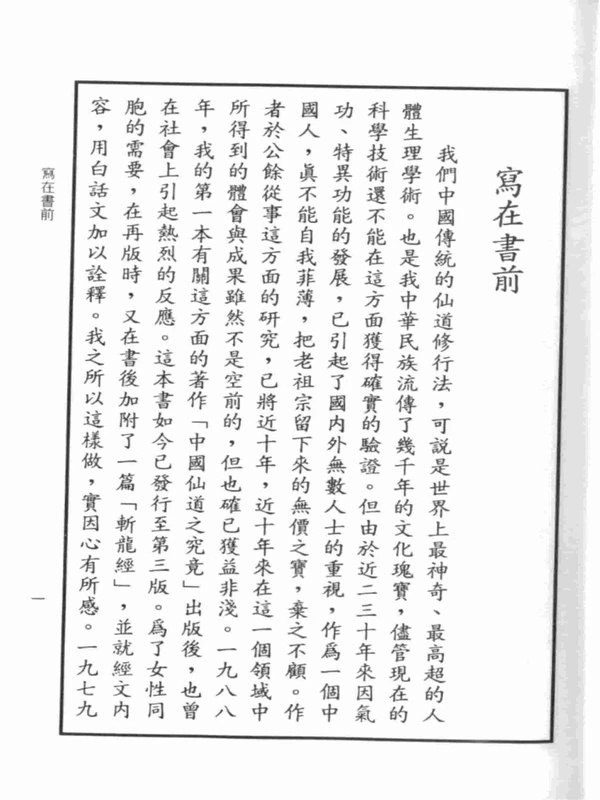 寫在書前
我們中國傳統的仙道修行法，可説是世界上最神奇、最高超的人
體生理學術。也是我中華民族流傳了幾千年的文化瑰寶，儘管現在的
科學技術還不能在這方面獲得確實的驗證。但由於近二三十年來因氣
功、特異功能的發展，已引起了國內外無數人士的重視，作爲一個中
國人，眞不能自我菲薄，把老祖宗留下來的無價之寶，棄之不顧。作
者於公餘從事這方面的研究，已將近十年，近十年來在這一個領域中
所得到的體會與成果雖然不是空前的，但也確已獲益非淺。一九八八
年，我的第一本有關這方面的著作「中國仙道之究竟」出版後，也曾
在社會上引起熱烈的反應。這本書如今已發行至第三版。爲了女性同
胞的需要，在再版時，又在書後加附了一篇「斬龍經」，並就經文內
容，用白話文加以詮釋。我之所以這樣做，實因心有所感。一九七九
寫在書前
一